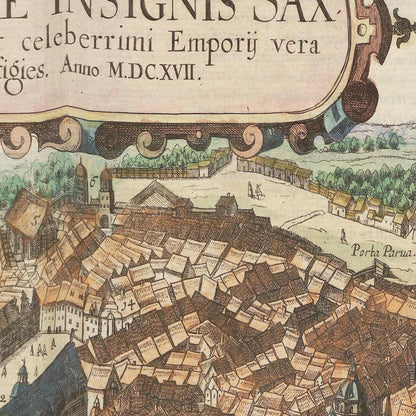 E INSIGNIS SAX.
celeberrimi Emporij vera
figies. Anno M.DC.XVII.
5
Porta Parua.
34
2